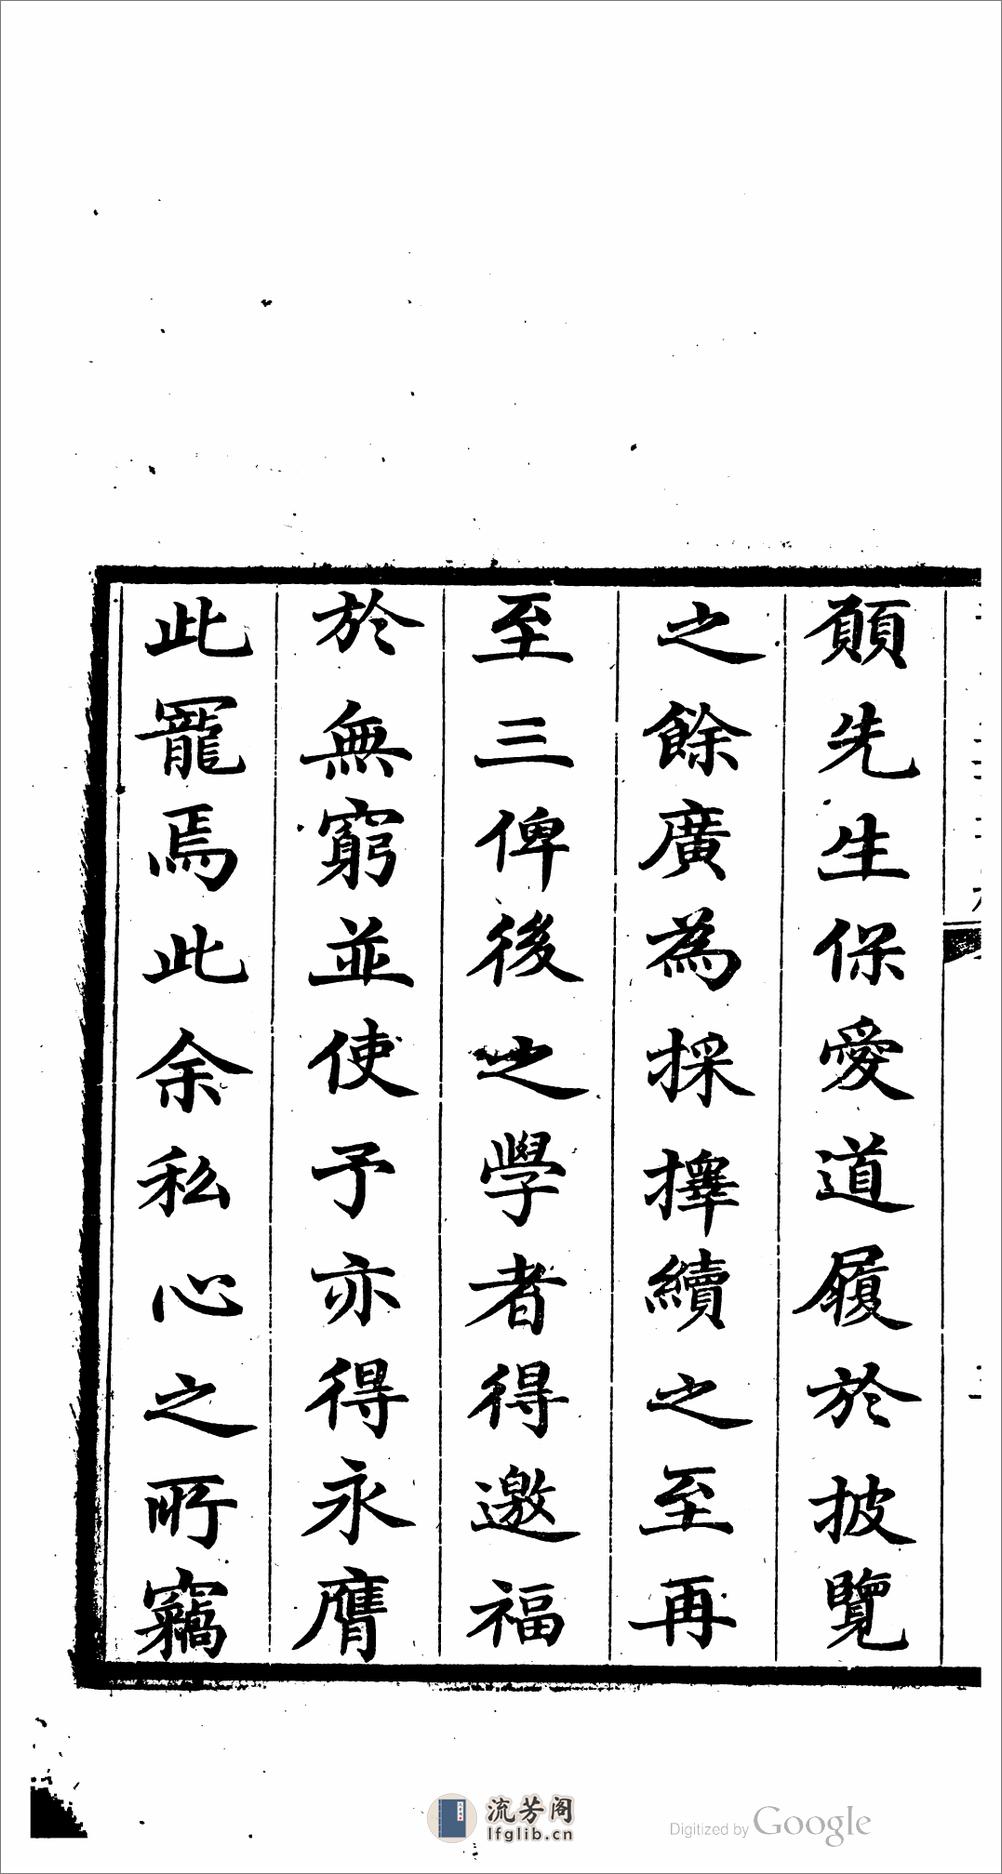 願先生保愛道履於披覽
之餘廣為採擇續之至再
至三俾後之學者得邀福
於無窮並使予亦得永膺
此寵焉此余私心之所竊
流芳阁
lfglib.cn
Digitized by Google